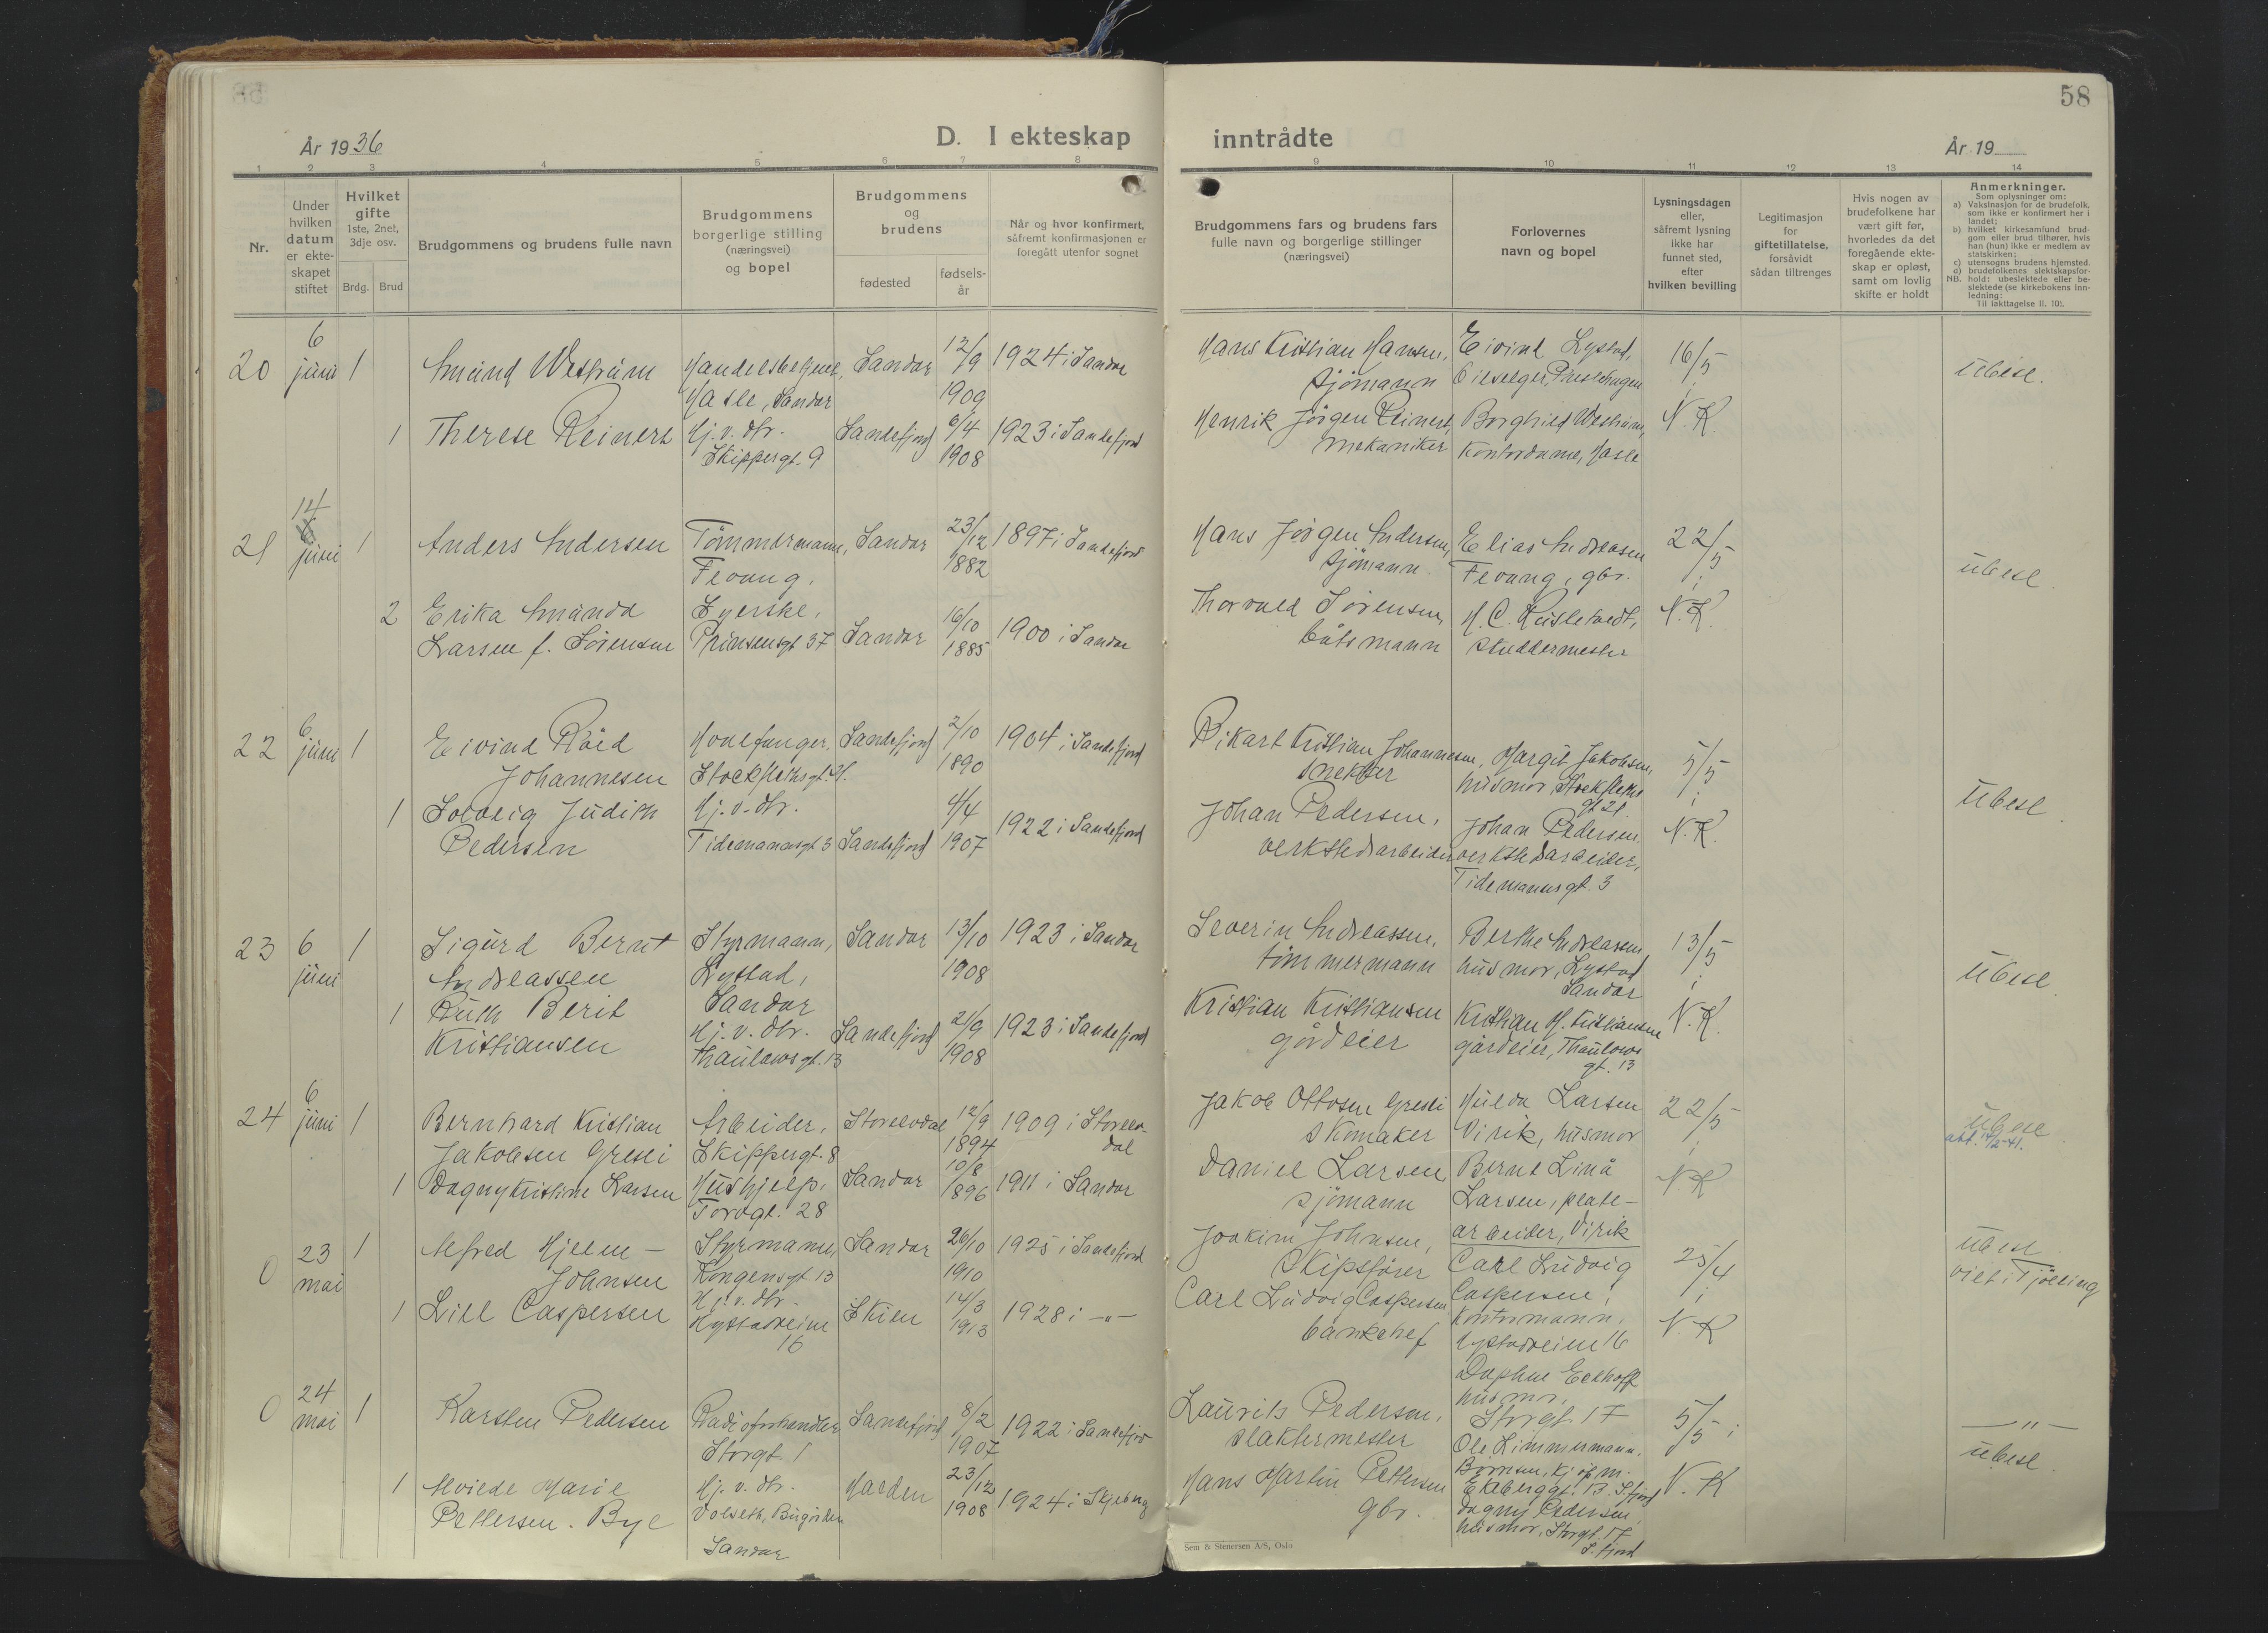 58
År 1936
D. I ekteskap inntrådte
År 19
1 2 3 4 5 6 7 8 9 10 11 12 13 14
Nr.
Under
hvilken
datum
er ekte-
skapet
stiftet
Hvilket
gifte
1ste, 2net,
3dje osv.
Brdg. Brud
Brudgommens og brudens fulle navn
Brudgommens
borgerlige stilling
(næringsvei)
og bopel
Brudgommens
og
brudens
fødested
fødsels-
år
Når og hvor konfirmert,
såfremt konfirmasjonen er
foregått utenfor sognet
Brudgommens fars og brudens fars
fulle navn og borgerlige stillinger
(næringsvei)
Forlovernes
navn og bopel
Lysningsdagen
eller,
såfremt lysning
ikke har
funnet sted,
efter
hvilken bevilling
Legitimasjon
for
giftetillatelse,
forsåvidt
sådan tiltrenges
Hvis nogen av
brudefolkene har
vært gift før,
hvorledes da det
foregående ekte-
skap er opløst,
samt om lovlig
skifte er holdt
Anmerkninger.
Som oplysninger om:
a) Vaksinasjon for de brudefolk,
som ikke er konfirmert her i
landet;
b) hvilket kirkesamfund brud-
gom eller brud tilhører, hvis
han (hun) ikke er medlem av
statskirken;
c) utensogns brudens hjemsted.
d) brudefolkenes slektskapsfor-
NB. hold: ubeslektede eller be-
slektede (se kirkebokens inn-
ledning:
Til iakttagelse II. 10).
20 6 juni 1
Amund Westrum
Handelsbetjent,
Hasle, Sandar
Sandar
12/9 1909
1924 i Sandar
Hans Kristian Hansen,
sjömann
Eivind Lystad,
16/5 i
N.K.
ubesl.
1 Therese Reinert
Hj.v. dtr.
Skippergt. 9
Sandefjord
6/4 1908
1923 i Sandefjord
Henrik Jörgen Reinert,
mekaniker
Borghild Westrum,
kontordame, Hasle
21 14 juni 1
Anders Andersen
Tömmermann,
Fevang.
Sandar
23/12 1882
1897 i Sandefjord
Hans Jörgen Andersen,
sjömann
Elias Andreasen
Fevang, gbr.
22/5 i
N.K.
ubesl.
2 Erika Amanda
Larsen f. Sörensen
Syerske,
Prinsensgt 37
Sandar
16/10 1885
1900 i Sandar
Thorvald Sörensen,
båtsmann
skreddermester
22 6 juni 1
Eivind Röed
Johannesen
Hvalfanger,
Stockflethsgt. 21.
Sandefjord
2/10 1890
1904 i Sandefjord
Rikart Kristian Johannesen,
snekker
Margit Jakobsen,
husmor, Stockfleths
gt 21.
5/5 i
N.K.
ubesl.
1 Solveig Judith
Pedersen
Hj.v. dtr.
Tidemannsgt 3
Sandefjord
4/4 1907
1922 i Sandefjord
Johan Pedersen,
verkstedsarbeider
Johan Pedersen,
verkstedarbeider,
Tidemannsgt. 3
23 6 juni 1
Sigurd Bernt
Andreassen
Styrmann,
Lystad,
Sandar
Sandar
13/10 1908
1923 i Sandar
Severin Andreassen,
tömmermann
Berthe Andreassen,
husmor, Lystad
Sandar
13/5 i
N.K.
ubesl.
1 Ruth Berit
Kristiansen
Hj.v. dtr.
Thaulowsgt. 13
Sandefjord
21/9 1908
1923 i Sandefjord
Kristian Kristiansen
gårdeier
Kristian H. Kristiansen
gårdeier, Thaulows
gt. 13
24 6 juni 1
Bernhard Kristian
Jakobsen Gresli
Arbeider,
Skippergt. 8
Storelvdal
12/9 1894
1909 i Storelv-
dal
Jakob Ottosen Gresli
skomaker
Hulda Larsen
Virik, husmor
22/5 i
N.K.
ubesl.
1 Dagny Kristine Larsen
Hushjelp.
Torvgt. 28
Sandar
10/8 1896
1911 i Sandar
Daniel Larsen
sjömann
Bernt Linå
Larsen, plate-
arbeider, Virik
0 23 mai 1
Alfred Hjelm-
Johnsen
Styrmann,
Kongensgt 13
Sandar
26/10 1910
1925 i Sandefjord
Joakim Johnsen,
Skipsförer
Carl Ludvig
Caspersen,
kontormann,
Hystadveien 16
25/4 i
N.K.
ubesl.
viet i Tjölling
1 Lill Caspersen
Hj.v. dtr.
Hystadveien
16
Skien
14/3 1913
1928 i -"-
Carl Ludvig Caspersen
banksjef
Daphne Eckhoff
husmor,
Storgt. 17
0 24 mai 1
Karsten Pedersen
Radioforhandler
Storgt. 1
Sandefjord
8/2 1907
1922 i Sandefjord
Laurits Pedersen,
slaktermester
Ole Zimmermann.
5/5 i
N.K.
-"-
ubesl.
1 Alvilde Marie
Pettersen. Bye
Hj.v. dtr.
Sandar
Halden
23/12 1908
1924 i Skjeberg
Hans Martin Pettersen
gbr.
Ekeberggt. 13. S.fjord
Dagny Pedersen,
husmor, Storgt. 17
S.fjord
Sem & Stenersen A/S, Oslo